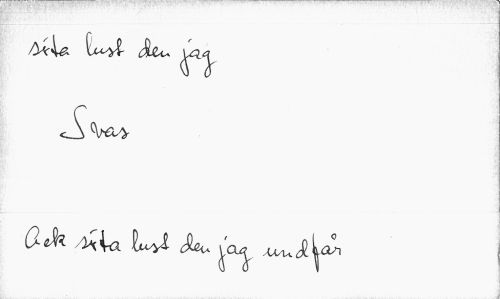 sita lust den jag
Svar
Ack sita lust den jag undfår